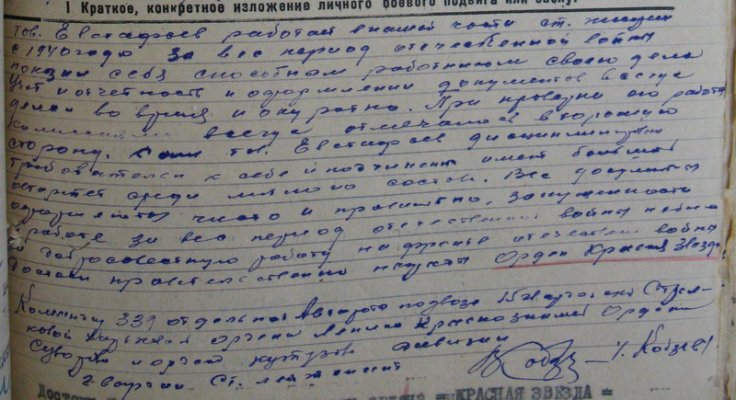 I Краткое, конкретное изложение личного боевого подвига или
тов. Евстафьев работает в нашей части ст.
с 1940 года за весь период отечественной войны
показал себя способным работником своего дела
учет и отчетность и оформлении документов всегда
делал во время и окуратно. При проверки его работы
всегда отмечалась в хорошую
сторону. тов. Евстафьев дисциплинирован
требователен к себе и подчиненым имеет большой
среди личного состава. Все документы
чисто и правильно, запущенности
в работе за весь период отечественной войны небыло
добросовестную работу на фронте отечествен войны
достоин правительственно награды Орден Красная Звезда
Командир 339 отдельной Авторота подвоза 15
ордена Ленина Краснознамен Ордена
Суворова и орден кутузова дивизии
Ст. лейтенант /Кобзев/
КРАСНАЯ ЗВЕЗДА =